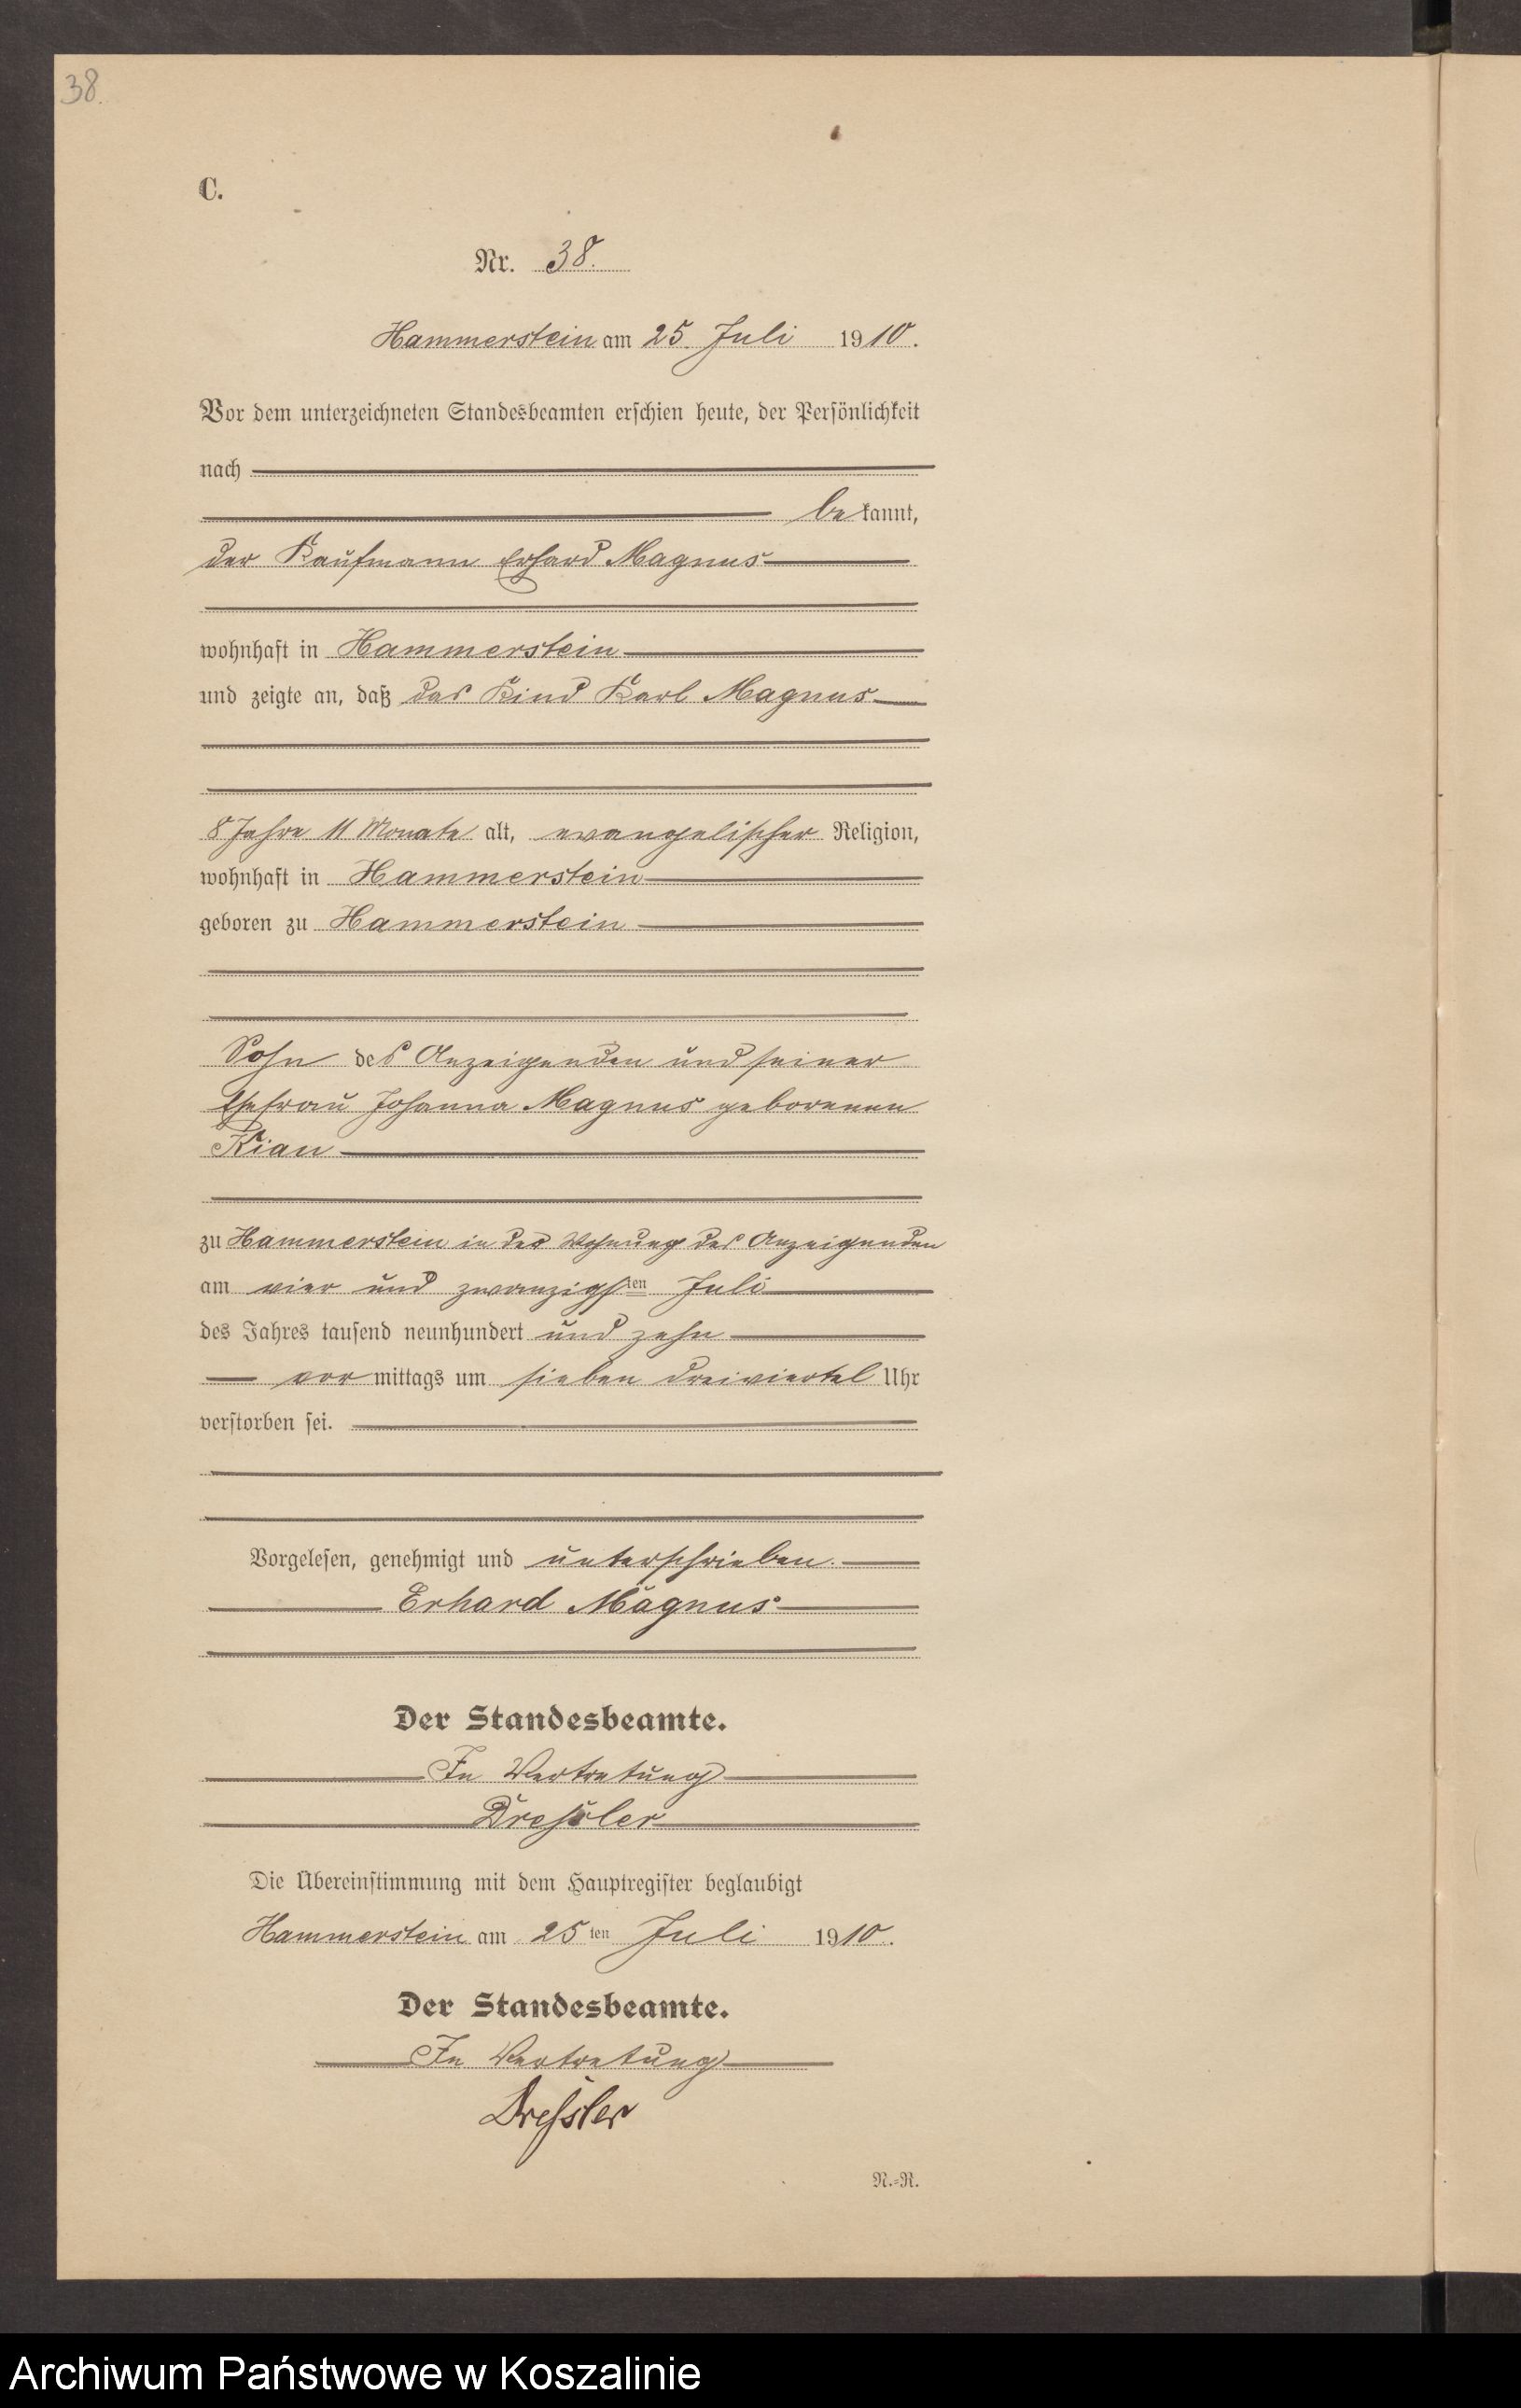 38.
C.
Nr. 38.
Hammerstein am 25. Juli 1910.
Vor dem unterzeichneten Standesbeamten erschien heute, der Persönlichkeit
nach
bekannt,
der Kaufmann Erhard Magnus
wohnhaft in Hammerstein
und zeigte an, daß das Kind Karl Magnus
8 Jahre 11 Monate alt, evangelischer Religion,
wohnhaft in Hammerstein
geboren zu Hammerstein
Sohn des Anzeigenden und seiner
Ehefrau Johanna Magnus geborenen
Kian
zu Hammerstein in der Wohnung des Anzeigenden
am vier und zwanzigsten Juli
des Jahres tausend neunhundert und zehn
vormittags um sieben dreiviertel Uhr
verstorben sei.
Vorgelesen, genehmigt und unterschrieben.
Erhard Magnus
Der Standesbeamte.
In Vertretung
Dressler
Die Übereinstimmung mit dem Hauptregister beglaubigt
Hammerstein am 25ten Juli 1910.
Der Standesbeamte.
In Vertretung
Dressler
N.-R.
Archiwum Państwowe w Koszalinie